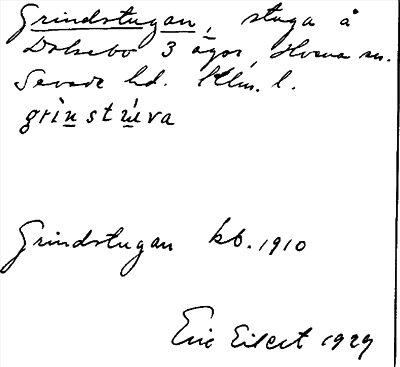 Grindstugan, stuga å
Dalsebo 3 ägor, Hvena sn.
Sevede hd. Klm. l.
grìnstú̀va
Grindstugan kb. 1910
Eric Eilert 1929